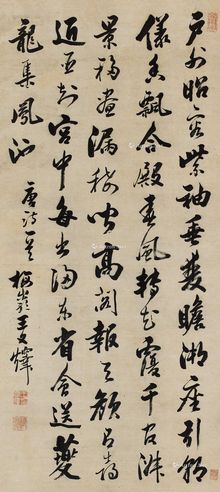 戶外昭容紫袖垂雙瞻御座引朝
儀香飄合殿春風轉花覆千官淑
景移晝漏稀聞高閣報天顏有喜
近臣知宮中每出歸東省會送夔
龍集鳳池
唐詩一首 梅嶺王